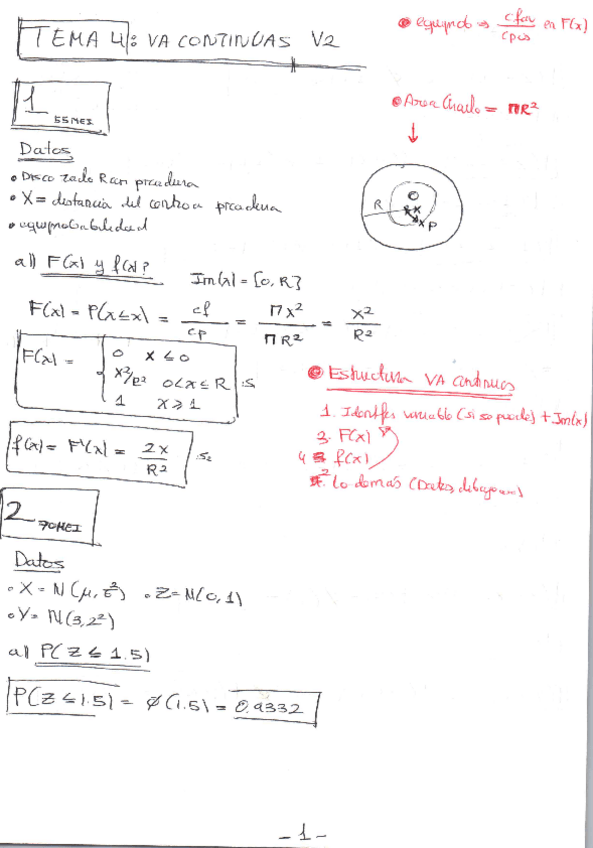 TEMA 4: VA CONTINUAS V2
• equiprob ⇒ cfav/cpos en F(x)
1 55MEI
• Area Circulo = πR²
Datos
• Disco radio R con picadura
• X = distancia del centro a picadura
• equiprobabilidad
R O x P
a) F(x) y f(x)?
Im(x) = [0, R]
F(x) = P(X ≤ x) = cf/cp = πx²/πR² = x²/R²
F(x) = { 0 x ≤ 0
x²/R² 0 < x ≤ R
1 x ≥ 1
• Estructura VA continuas
1. Identificar variable (si se puede) + Im(x)
3. F(x)
4 f(x)
2 Lo demas (Datos, dibujo)
f(x) = F'(x) = 2x/R²
2 70MEI
Datos
• X = N(μ, σ²) • Z = N(0, 1)
• Y = N(3, 2²)
a) P(Z ≤ 1.5)
P(Z ≤ 1.5) = φ(1.5) = 0.9332
- 1 -